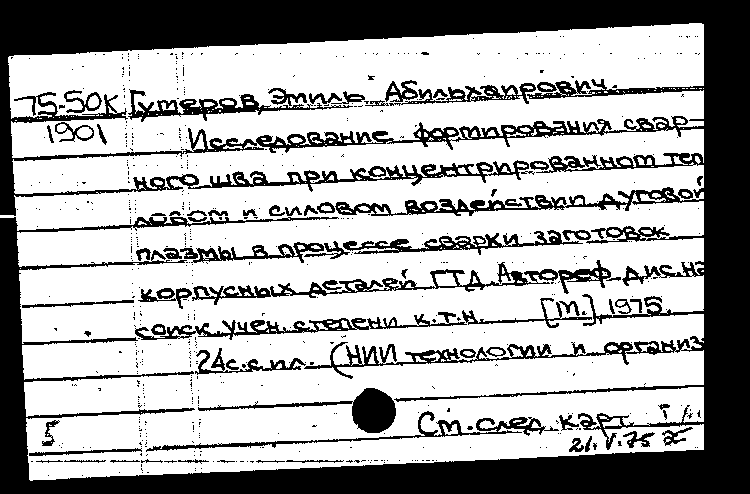 75-50К Гутеров, Этиль Абильхаирович.
1901 Исследование формирования свар-
ного шва при концентрированном теп
ловом и силовом воздействии дуговой
плазмы в процессе сварки заготовок
корпусных деталей ГТД. Автореф. дис. на
соиск. учен. степени к.т.н. [М.], 1975.
24с. с ил. (НИИ технологии и организ
5 См. след. карт.
21.V.75